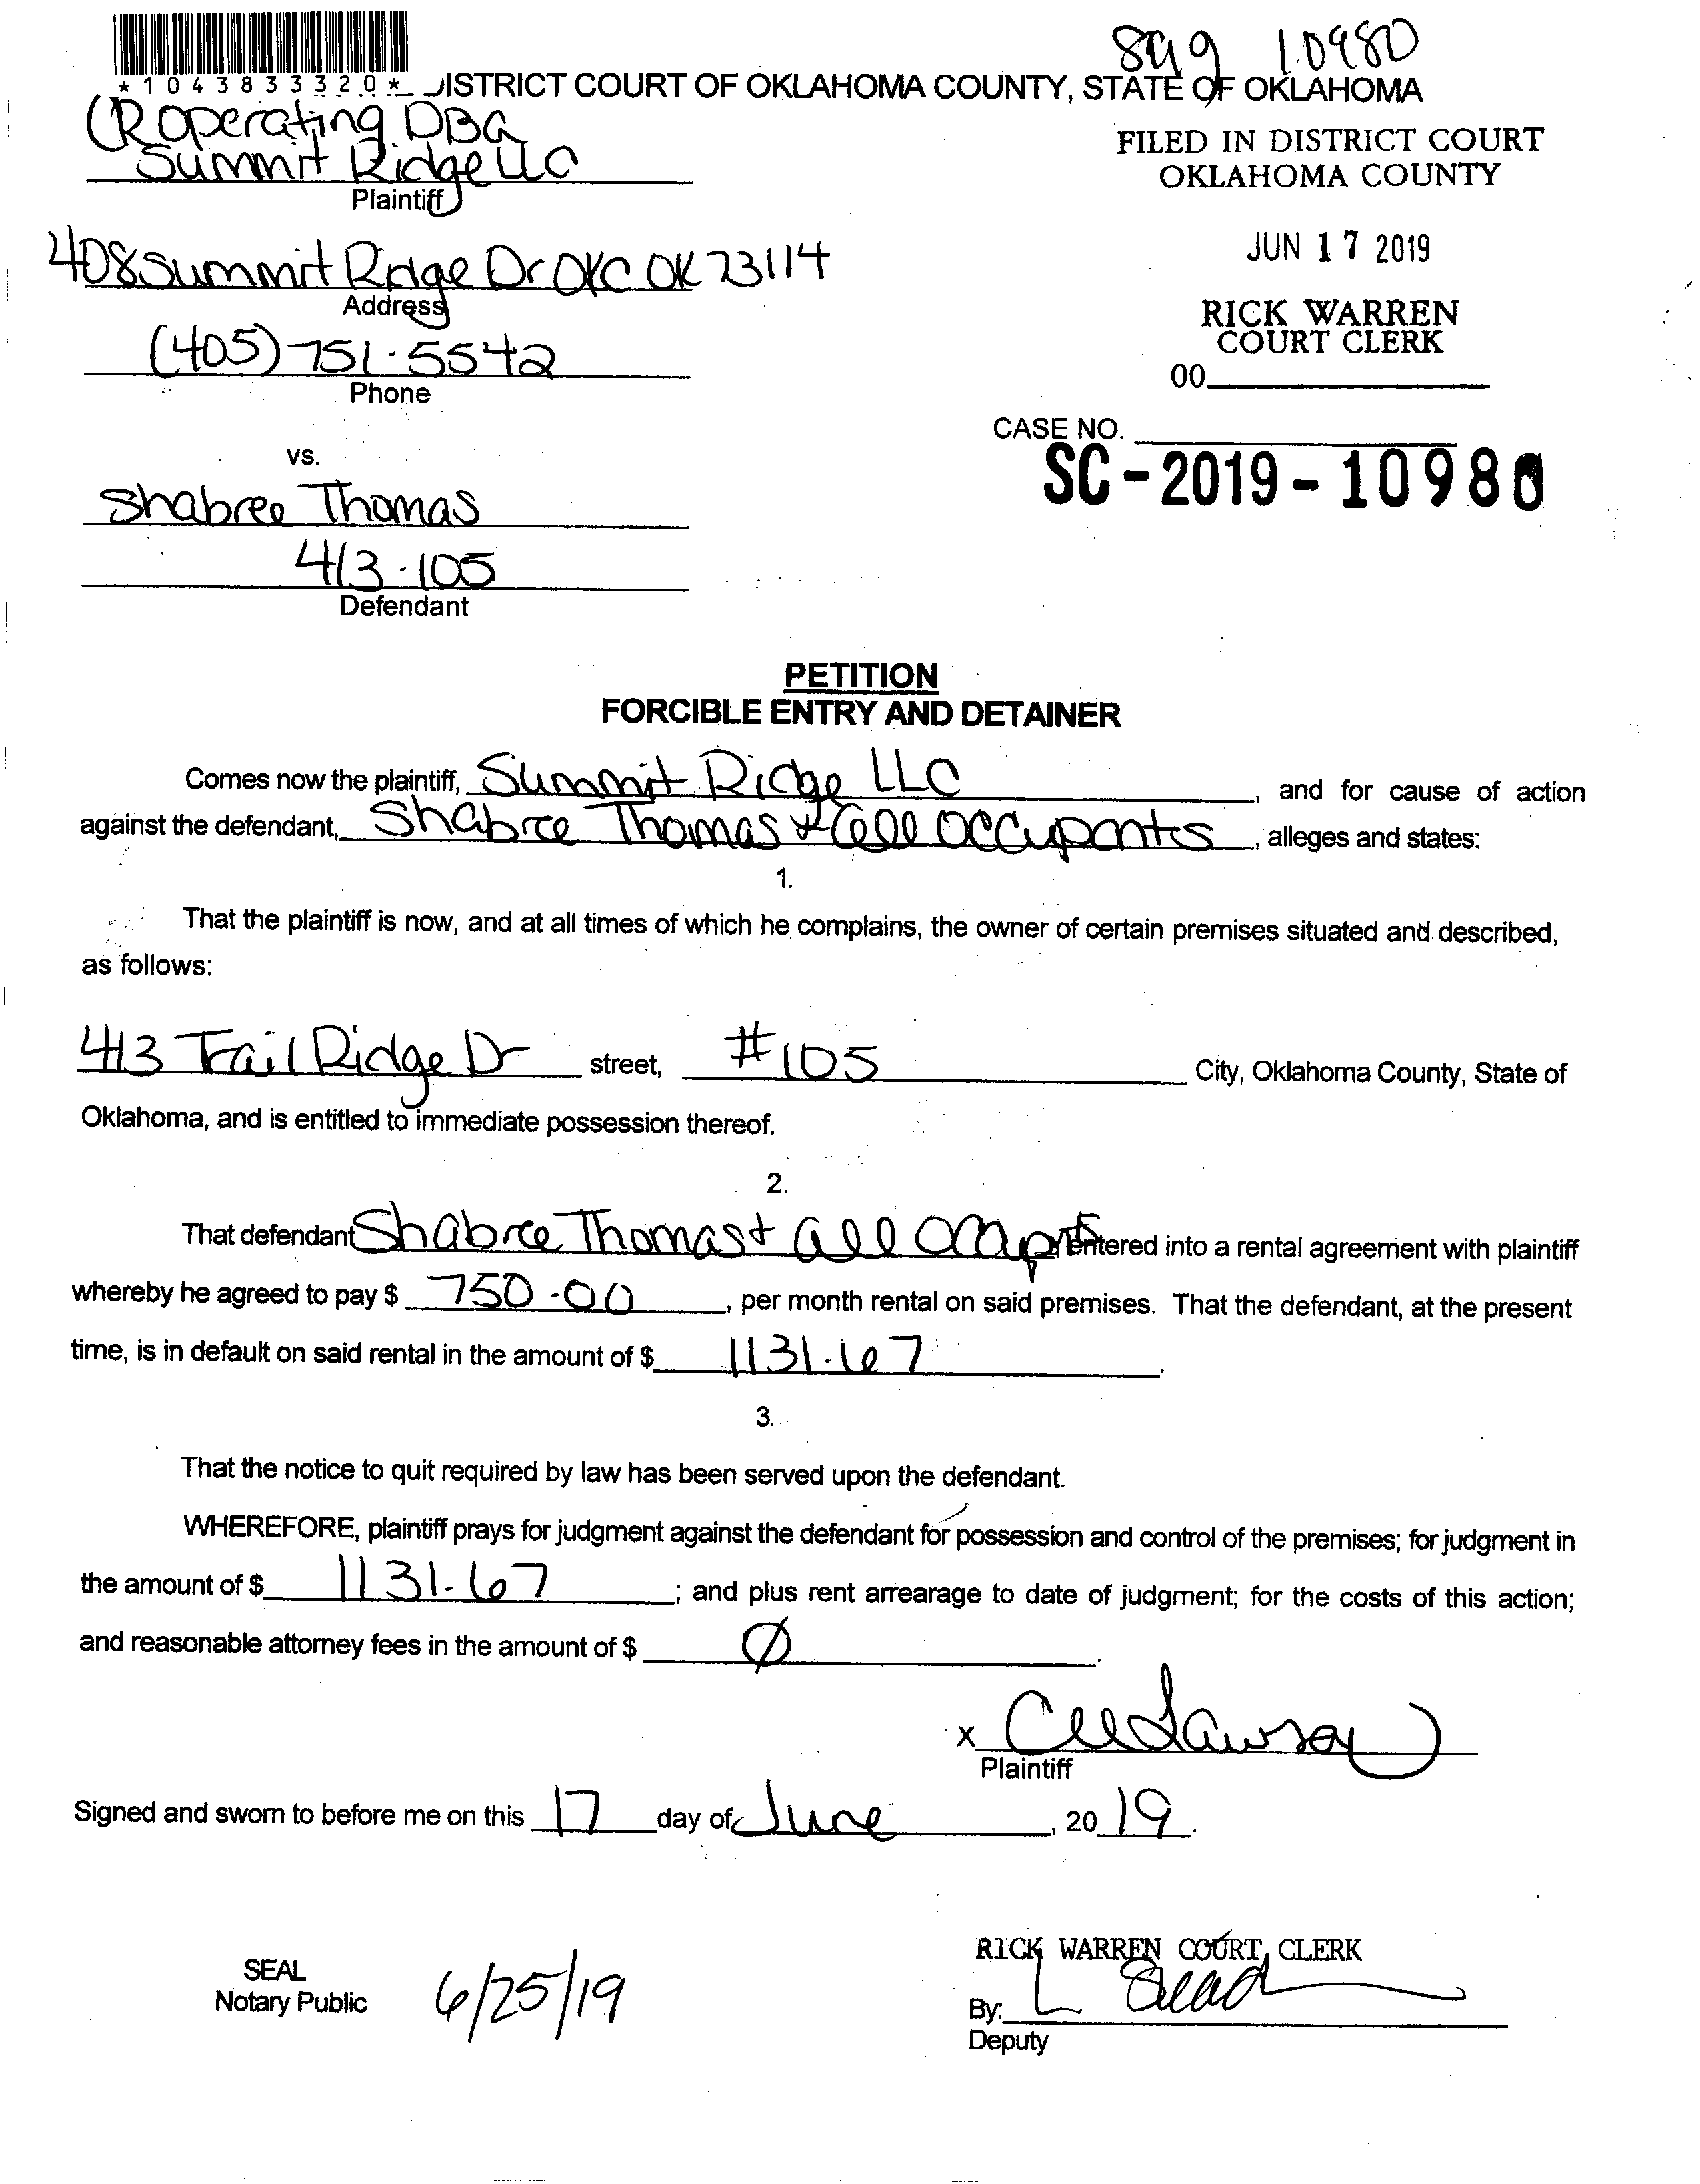 *1043833320*
DISTRICT COURT OF OKLAHOMA COUNTY, STATE OF OKLAHOMA
10980
CR Operating DBA
Summit Ridge LLC
Plaintiff
FILED IN DISTRICT COURT
OKLAHOMA COUNTY
JUN 17 2019
408 Summit Ridge Dr OKC OK 73114
Address
RICK WARREN
COURT CLERK
(405) 751-5542
Phone
00
CASE NO.
SC-2019-10980
vs.
Shabree Thomas
413-105
Defendant
PETITION
FORCIBLE ENTRY AND DETAINER
Comes now the plaintiff, Summit Ridge LLC, and for cause of action
against the defendant, Shabree Thomas + all occupants, alleges and states:
1.
That the plaintiff is now, and at all times of which he complains, the owner of certain premises situated and described,
as follows:
413 Trail Ridge Dr street, #105 City, Oklahoma County, State of
Oklahoma, and is entitled to immediate possession thereof.
2.
That defendant Shabree Thomas + all entered into a rental agreement with plaintiff
whereby he agreed to pay $ 750.00, per month rental on said premises. That the defendant, at the present
time, is in default on said rental in the amount of $ 1131.67.
3.
That the notice to quit required by law has been served upon the defendant.
WHEREFORE, plaintiff prays for judgment against the defendant for possession and control of the premises; for judgment in
the amount of $ 1131.67; and plus rent arrearage to date of judgment; for the costs of this action;
and reasonable attorney fees in the amount of $ Ø.
x
Plaintiff
Signed and sworn to before me on this 17 day of June, 2019.
RICK WARREN COURT CLERK
SEAL
Notary Public
6/25/19
By:
Deputy